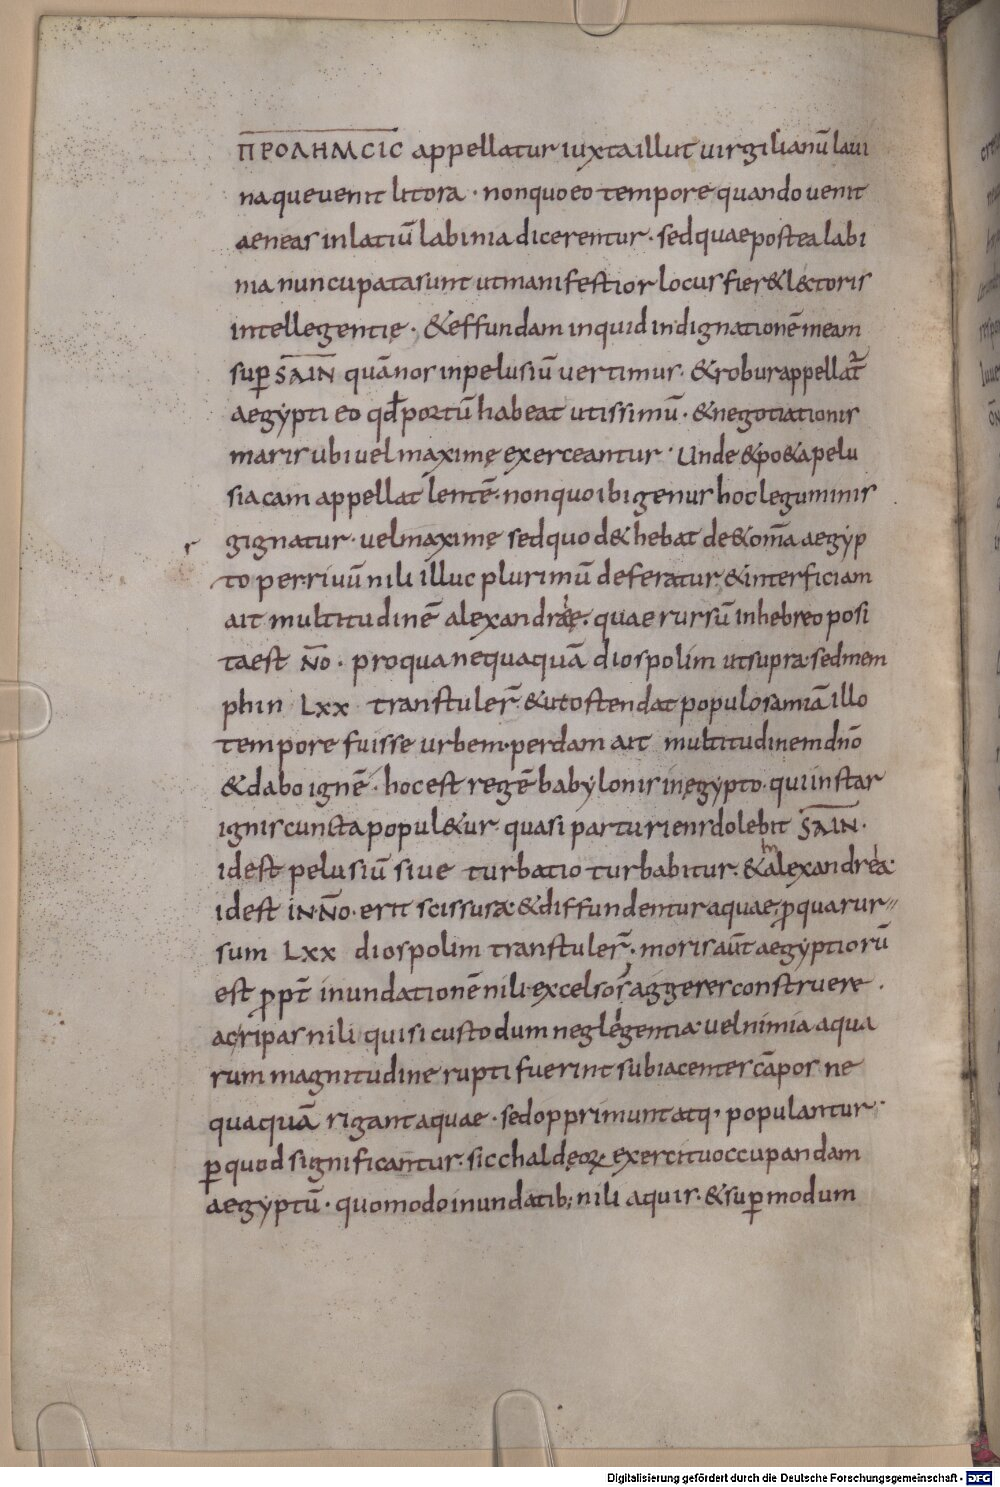 ΠΡΟΛΗΜСΙС appellatur iuxta illut uirgilianū laui
na que uenit litora · non quo eo tempore quando uenit
aeneas in latiū labinia dicerentur · sed quae postea labi
nia nuncupata sunt ut manifestior locus fier& lectoris
intellegentię · & effundam inquid indignationē meam
sup̄ SAIN quā nos in pelusiū uertimus · & robur appellat̄
aegypti eo qđ portū habeat utissimū · & negotiationis
maris ubi uel maximę exerceantur · Unde & po&a pelu
siacam appellat lentē · non quo ibi genus hoc leguminis
gignatur · uel maximę sed quod & hebat de & om̄a aegyp
to per riuū nili illuc plurimū deferatur & interficiam
ait multitudinē alexandrię · quae rursū in hebreo posi
ta est N̄o · pro qua nequaquā diospolim ut supra · sed mem
phin Lxx transtuler̄ & ut ostendat populosam iā illo
tempore fuisse urbem · perdam ait multitudinem dn̄o
& dabo ignē · hoc est regē babylonis in ęgypto · qui instar
ignis cuncta popul&ur · quasi parturiens dolebit SAIN ·
id est pelusiū siue turbatio turbabitur · & in alexandria ·
id est in · N̄o · erit scissura · & diffundentur aquae, p̄ qua rur
sum Lxx diospolim transtuler̄ · moris aūt aegyptiorū
est p̄pt̄ inundationē nili · excelsos aggeres construere ·
ac ripas nili qui si custodum neglegentia · uel nimia aqua
rum magnitudine rupti fuerint subiacentes cāpos ne
quaquā rigant aquae · sed opprimunt atq; populantur ·
p̱ quod significantur · sic chaldęoꝝ exercitu occupandam
aegyptū · quomodo inundatib; nili aquis · & sup̱ modum
r
Digitalisierung gefördert durch die Deutsche Forschungsgemeinschaft - DFG